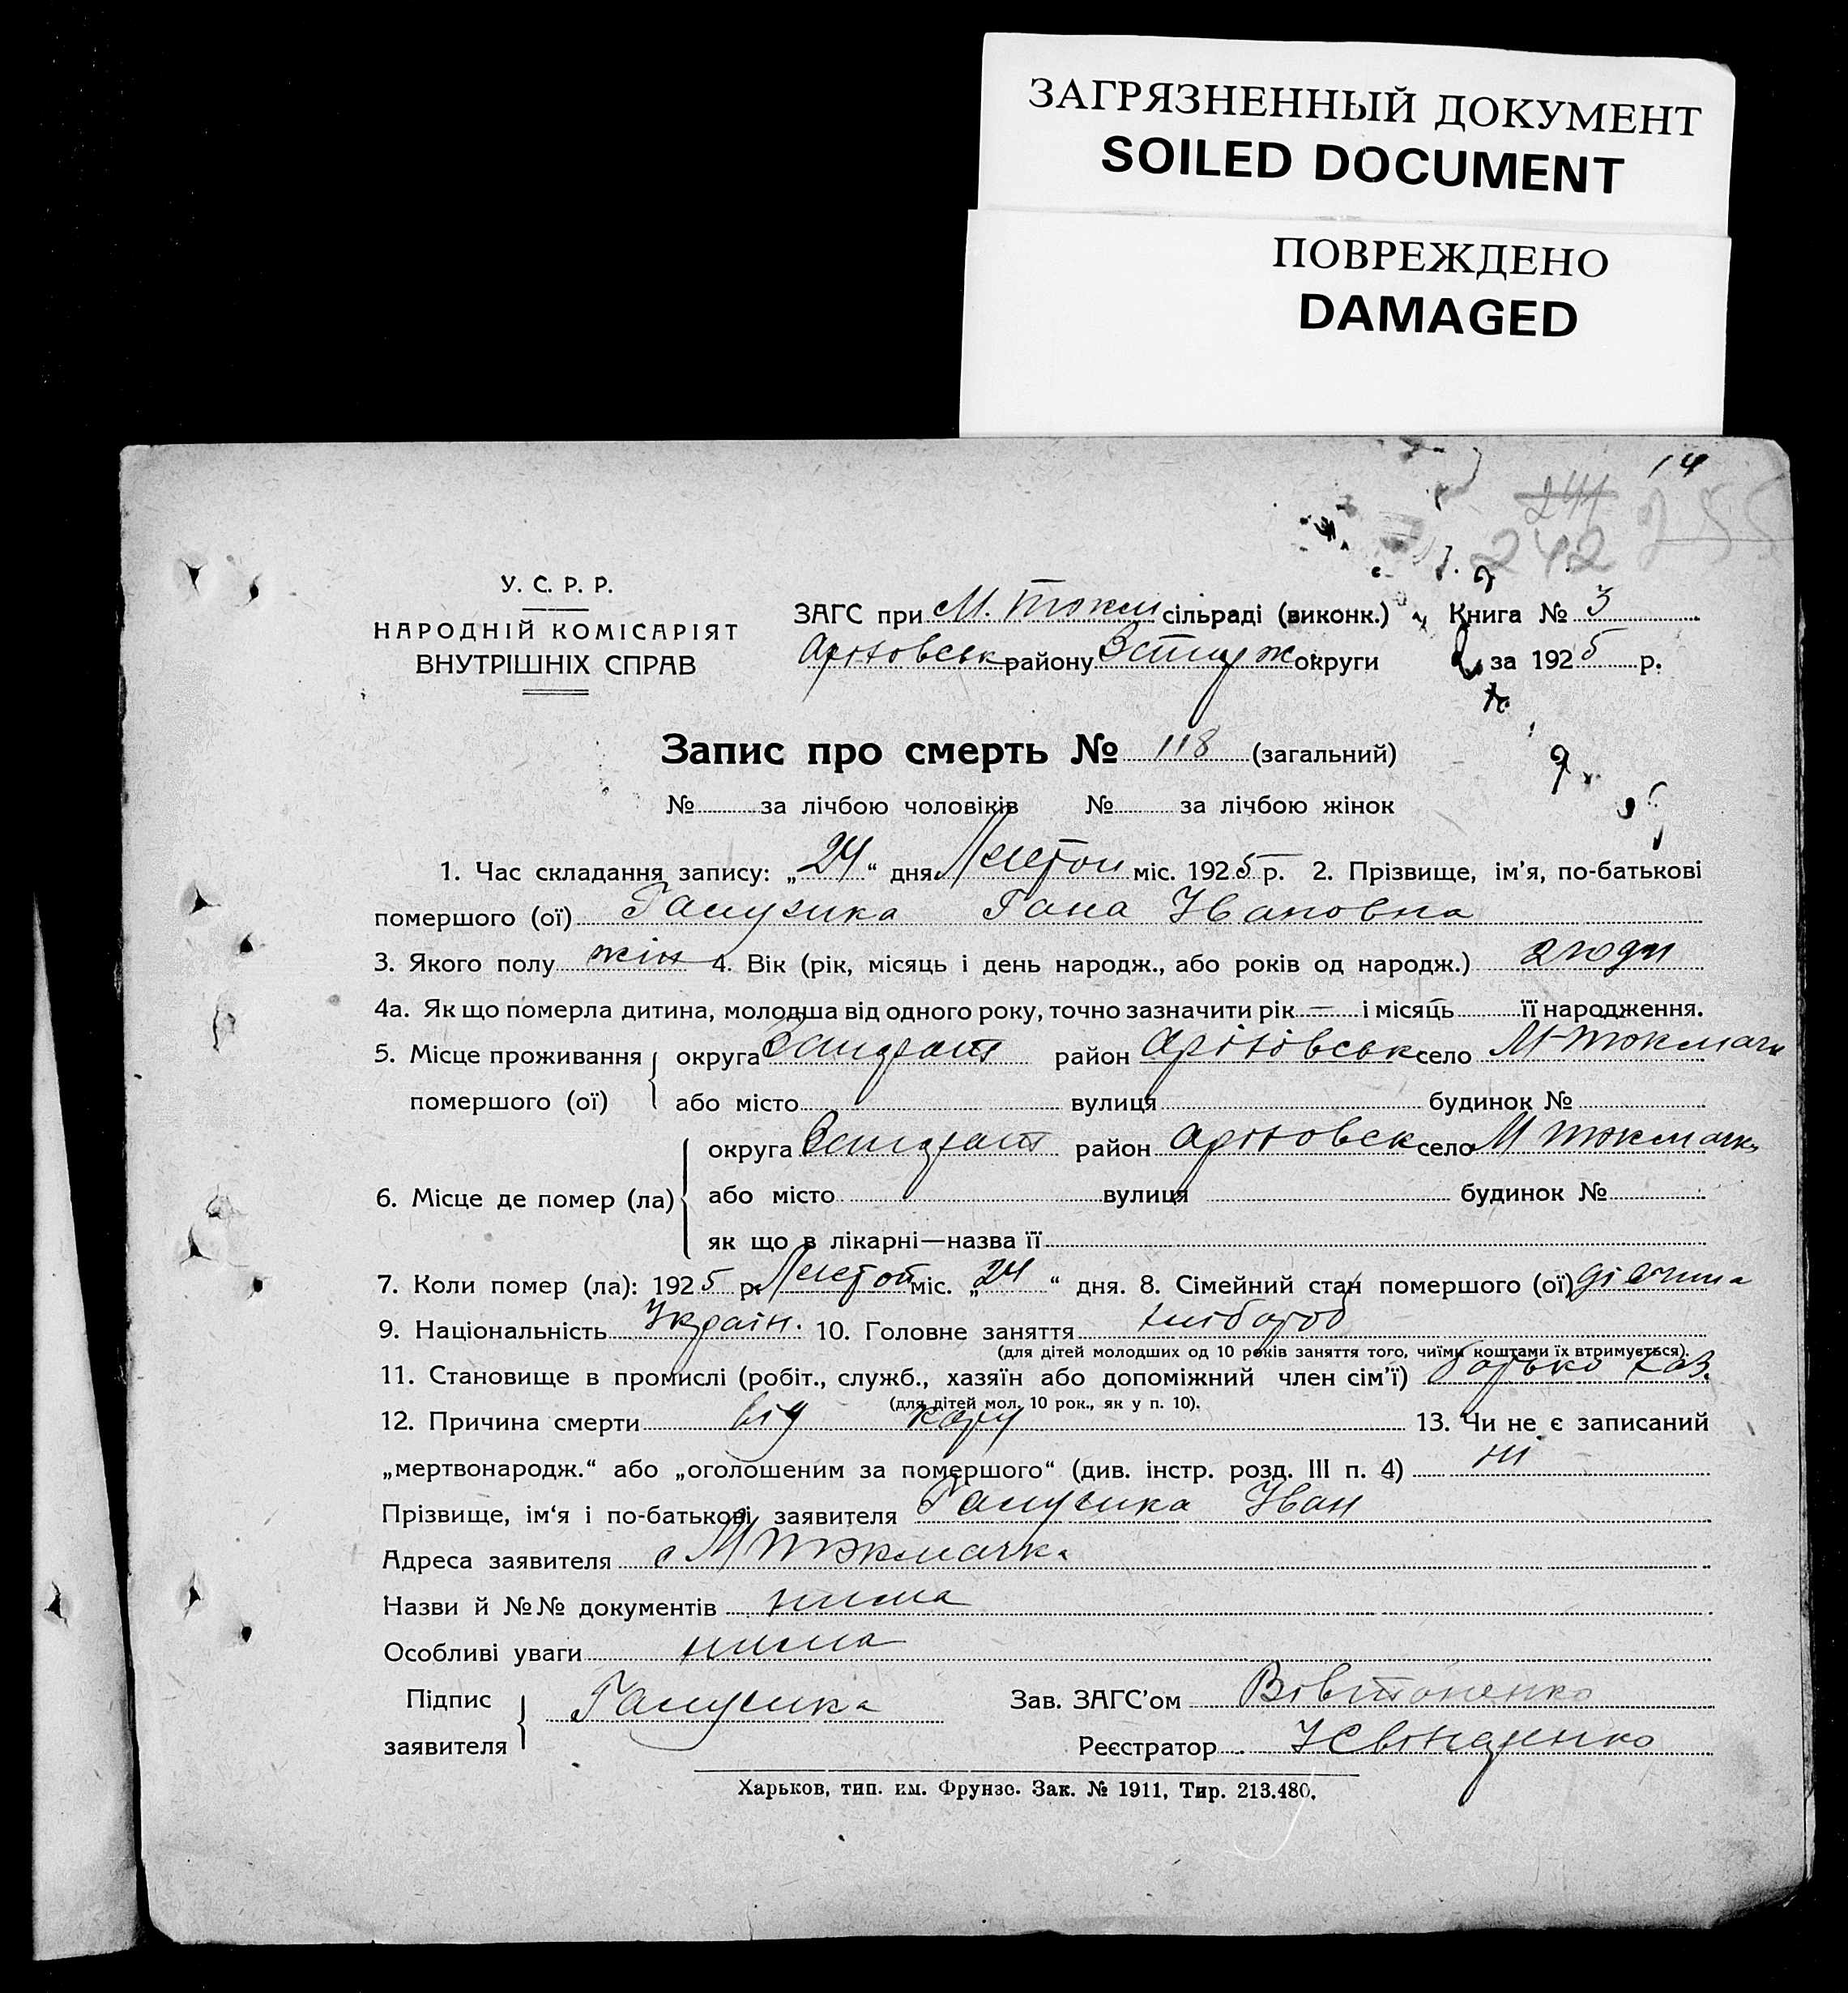 ЗАГРЯЗНЕННЫЙ ДОКУМЕНТ
SOILED DOCUMENT
ПОВРЕЖДЕНО
DAMAGED
14
244
242
У. С. Р. Р.
НАРОДНІЙ КОМІСАРІЯТ
ВНУТРІШНІХ СПРАВ
ЗАГС при М. Токм сільраді (виконк.) Книга № 3
району округи за 1925 р.
Запис про смерть № 118 (загальний)
№ за лічбою чоловіків № за лічбою жінок
1. Час складання запису: „24“ дня Листоп міс. 1925 р. 2. Прізвище, ім'я, по-батькові
помершого (ої) Галушка Гана Івановна
3. Якого полу жін 4. Вік (рік, місяць і день народж., або років од народж.) 2 годи
4а. Як що померла дитина, молодша від одного року, точно зазначити рік — і місяць її народження.
5. Місце проживання округа район село М-Токмачк
помершого (ої) або місто вулиця будинок №
округа район село М Токмачк
6. Місце де помер (ла) або місто вулиця будинок №
як що в лікарні—назва її
7. Коли помер (ла): 1925 р. Листоп міс. „24“ дня. 8. Сімейний стан помершого (ої) дівчина
9. Національність Україн. 10. Головне заняття хлібороб
(для дітей молодших од 10 років заняття того, чиїми коштами їх втримується).
11. Становище в промислі (робіт., служб., хазяїн або допоміжний член сім'ї) батько хаз.
(для дітей мол. 10 рок., як у п. 10).
12. Причина смерти від кору 13. Чи не є записаний
„мертвонародж.“ або „оголошеним за помершого“ (див. інстр. розд. III п. 4) ні
Прізвище, ім'я і по-батькові заявителя Галушка Іван
Адреса заявителя с М Токмачка
Назви й №№ документів нима
Особливі уваги нима
Підпис Галушка Зав. ЗАГС'ом
заявителя Реєстратор
Харьков, тип. им. Фрунзе. Зак. № 1911, Тир. 213.480.